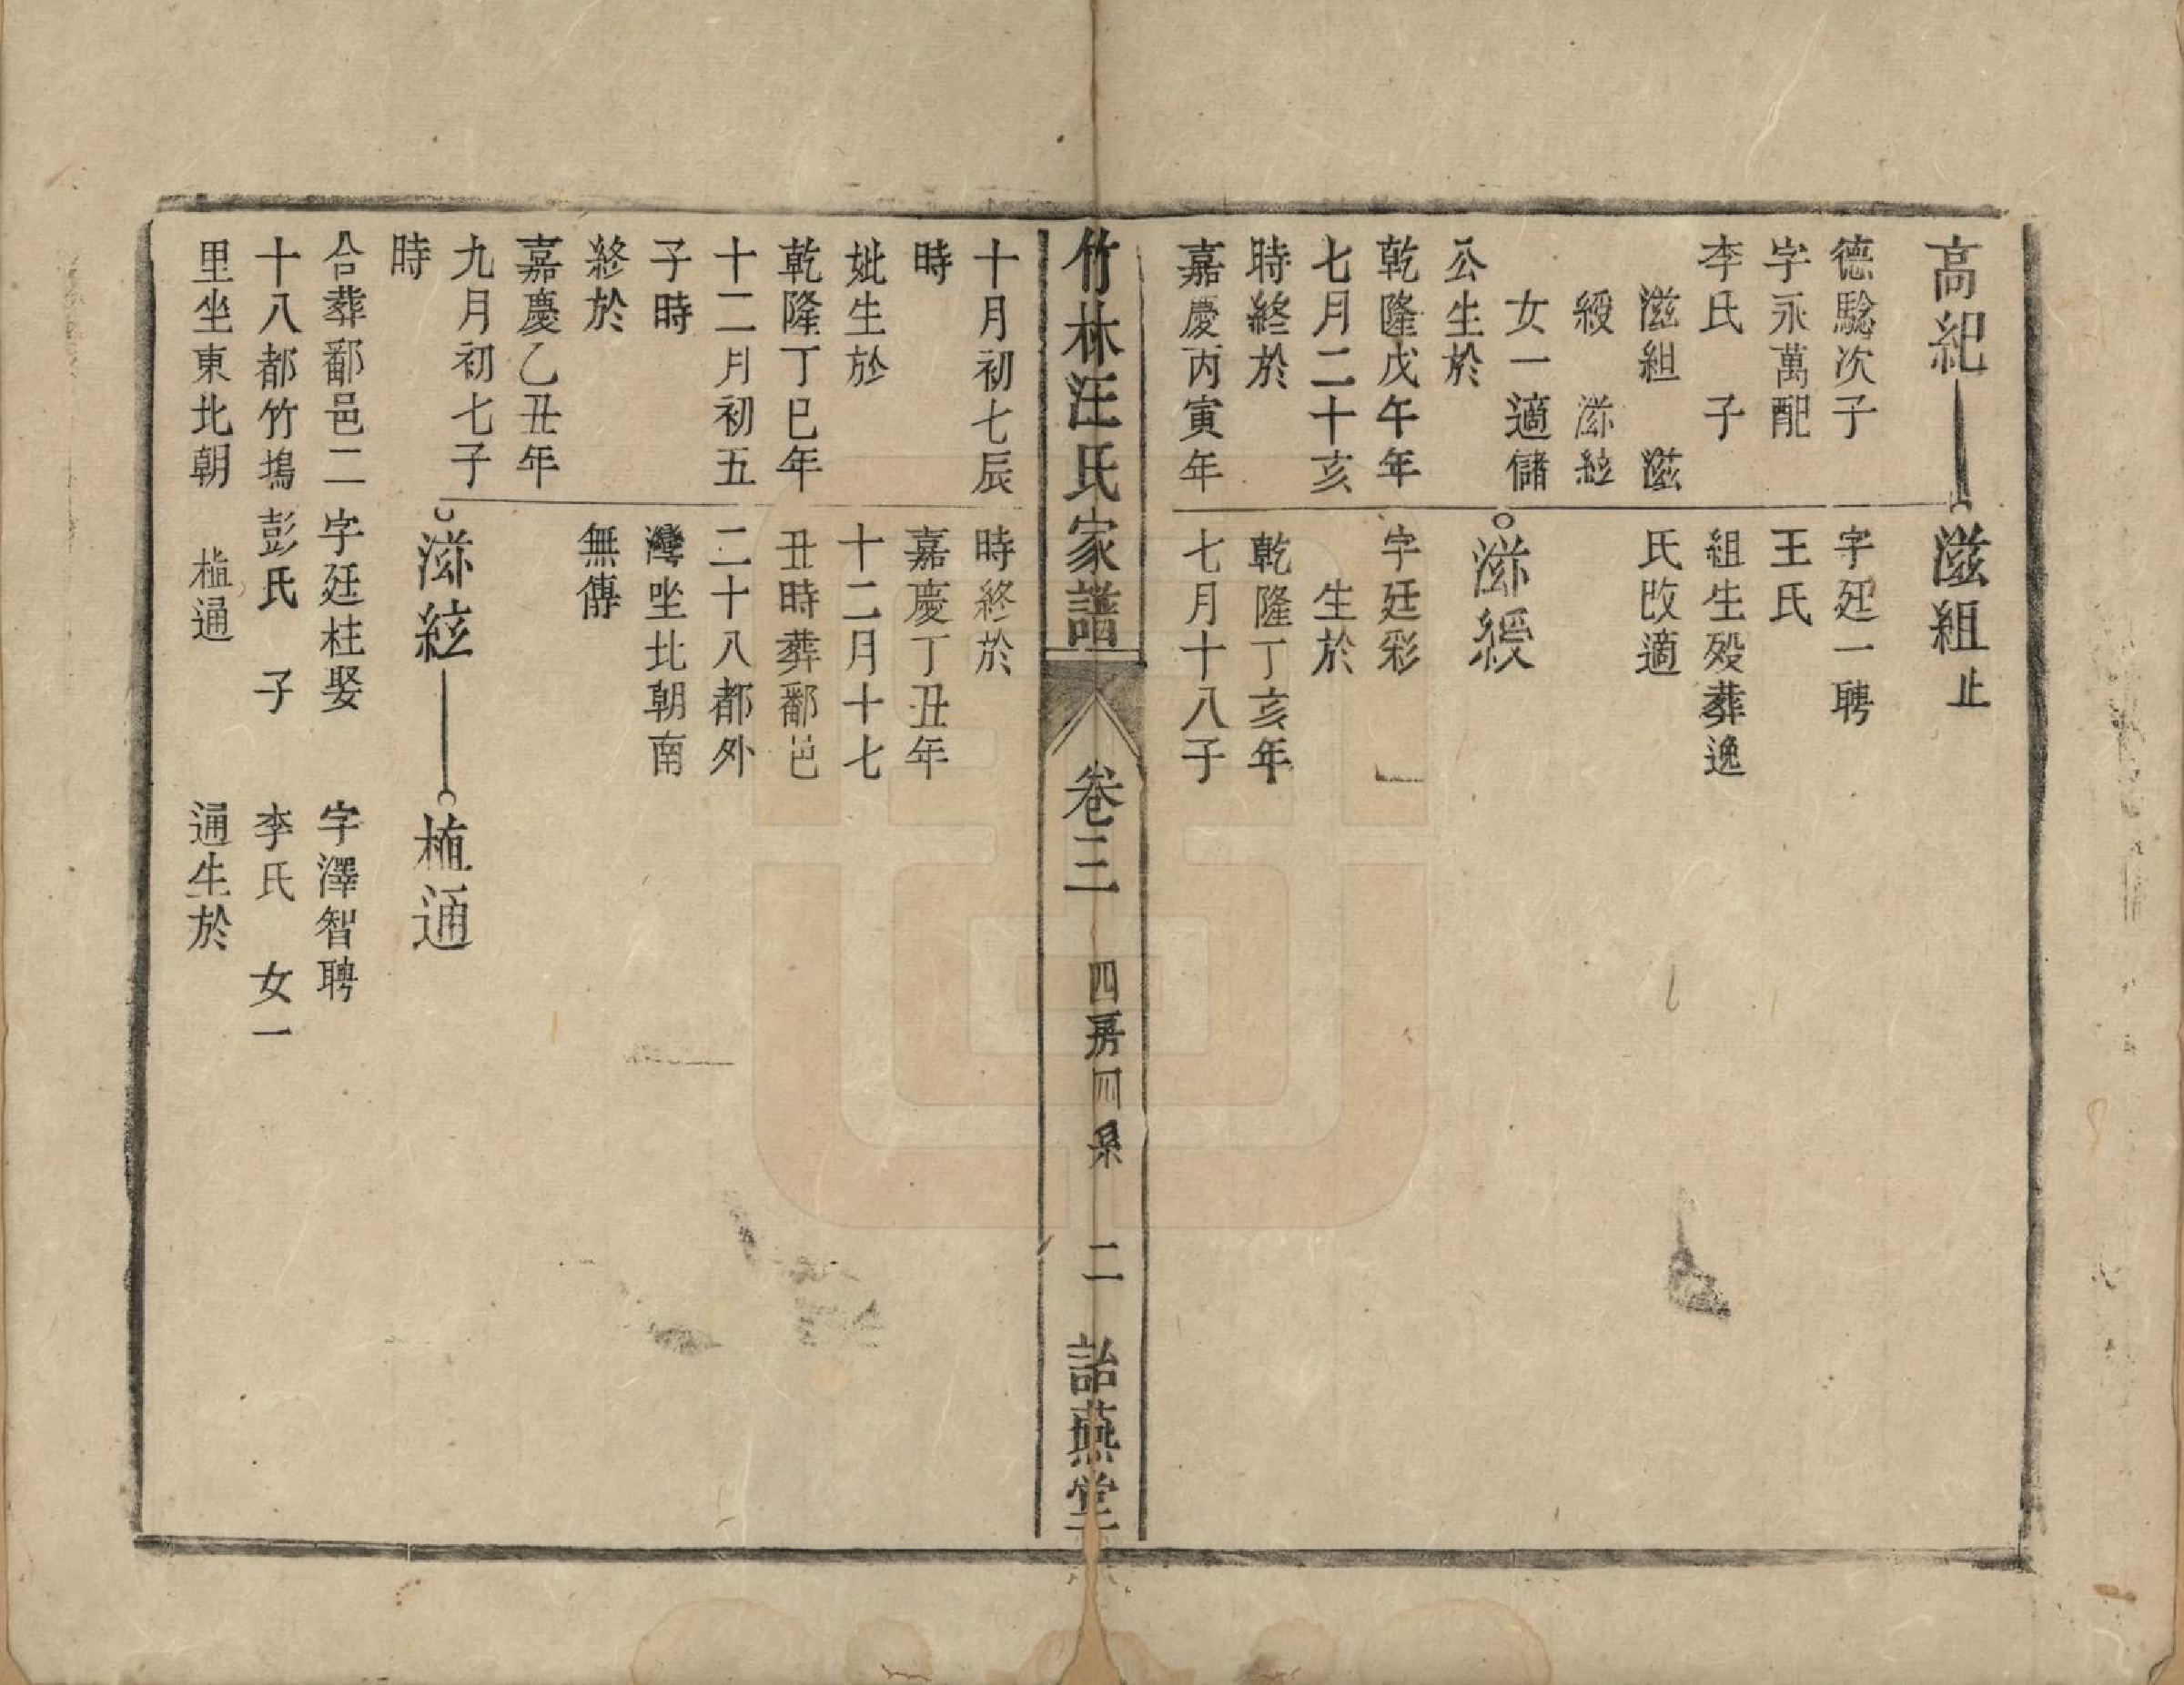 高紀
德騐次子
字永萬配
李氏　子
滋組　滋
綬　滋絃
女一適儲
公生於
乾隆戊午年
七月二十亥
時終於
嘉慶丙寅年
滋組止
字廷一聘
王氏
組生歿葬逸
氏改適
滋綬
字廷彩
生於
乾隆丁亥年
七月十八子
竹林汪氏家譜
卷三
四房四泉
二
詒燕堂
十月初七辰
時
妣生於
乾隆丁巳年
十二月初五
子時
終於
嘉慶乙丑年
九月初七子
時
合葬鄱邑二
十八都竹塢
里坐東北朝
時終於
嘉慶丁丑年
十二月十七
丑時葬鄱邑
二十八都外
灣坐北朝南
無傳
滋絃
字廷柱娶
彭氏　子
植通
植通
字澤智聘
李氏　女一
通生於